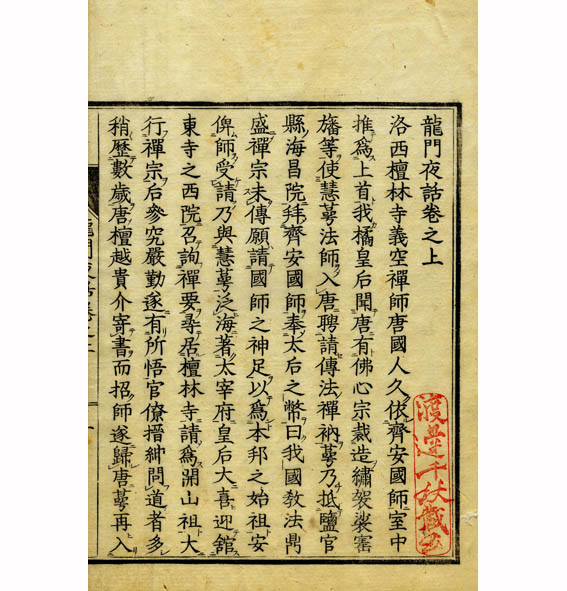 龍門夜話卷之上
洛西檀林寺義空禪師唐國人久依齊安國師室中
推爲上首我橘皇后聞唐有佛心宗裁造繡袈裟
旛等使慧萼法師入唐聘請傳法禪衲萼乃抵鹽官
縣海昌院拜齊安國師奉太后之幣曰我國敎法鼎
盛禪宗未傳願請國師之神足以爲本邦之始祖安
俾師受請乃與慧萼泛海著太宰府皇后大喜迎舘
東寺之西院召詢禪要尋居檀林寺請爲開山祖大
行禪宗后參究嚴勤遂有所悟官僚搢紳問道者多
稍歷數歲唐檀越貴介寄書而招師遂歸唐萼再入
渡邊千秋藏書